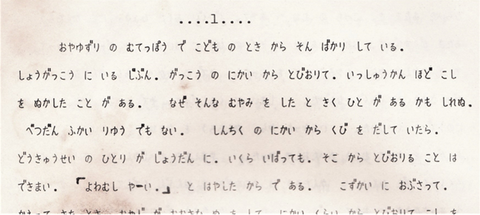 ....1....
おやゆずり の むてっぽう で こども の とき から そん ばかり して いる.
しょうがっこう に いる じぶん. がっこう の にかい から とびおりて. いっしゅうかん ほど こし
を ぬかした こと が ある. なぜ そんな むやみ を した と きく ひと が ある かも しれぬ.
べつだん ふかい りゆう でも ない. しんちく の にかい から くび を だして いたら.
どうきゅうせい の ひとり が じょうだん に. いくら いばっても. そこ から とびおりる こと は
できまい. 「よわむし やーい.」 と はやした から で ある. こずかい に おぶさって.